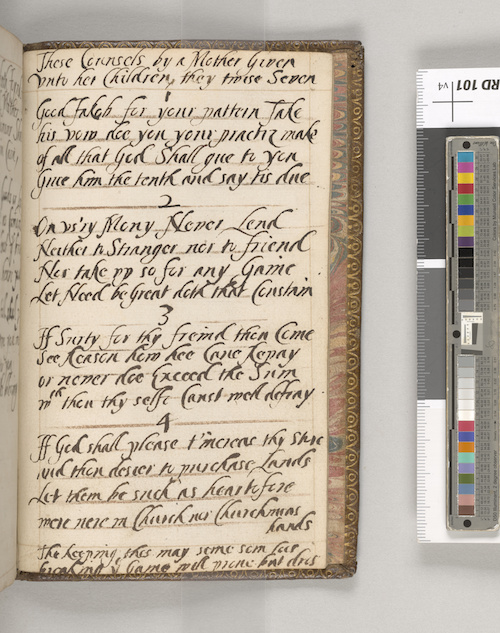 These Counsels by a Mother Given
vnto her Children, they twise Seven
1
Good Jakob for your pattern Take
his vow doe you your practiz make
of all that God Shall giue to you
Giue him the tenth and say tis due
2
On vs'ry Mony Never Lend
Neither to Stranger nor to friend
Nor take vp so for any Game
Let Need be Great doth that Constrain
3
If Surty for thy freind thou Come
See Reason how hee Cane Repay
or never doe Exceed the Sum
wch thou thy selfe Canst well defray
4
If God shall please t'increas thy Store
And thou desier to purchase Lands
Let them be such as heartofore
were nere in Church nor Churchmans
hands
The keeping, this may seme som loss
breaking ye Game will prove but dros
RD 101
v4